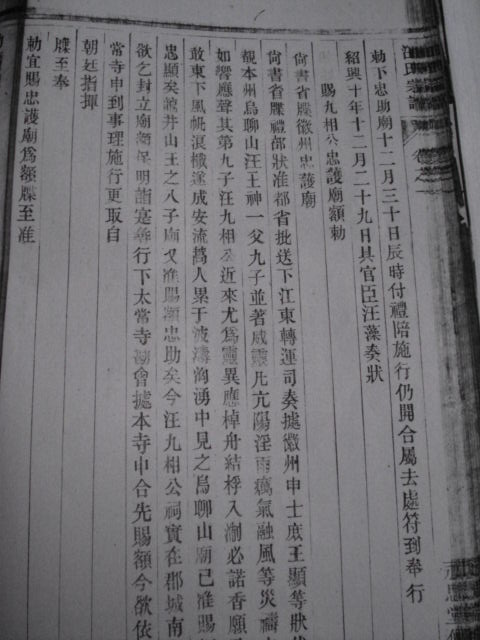 汪氏宗譜
卷之
勅下忠助廟十二月三十日辰時付禮陪施行仍開合屬去處符到奉行
紹興十年十二月二十九日具官臣汪藻奏狀
賜九相公忠護廟額勅
尙書省牒徽州忠護廟
尙書省牒禮部狀准都省批送下江東轉運司奏據徽州申士庶王顯等狀
覩本州烏聊山汪王神一父九子並著威靈凡亢陽淫雨癘氣融風等災禱
如響應聲其第九子汪九相公近來尤爲靈異應棹舟結桴入淛必諾香願
敢東下風帆浪檝遂成安流萬人累于波濤洶湧中見之烏聊山廟已准賜
忠顯矣䕶井山王之八子廟又准賜額忠助矣今汪九相公祠實在郡城南
欲乞封立廟額保明詣寔尋行下太常寺勘會據本寺申合先賜額今欲依
常寺申到事理施行更取自
朝廷指揮
牒至奉
勅宜賜忠護廟爲額牒至准